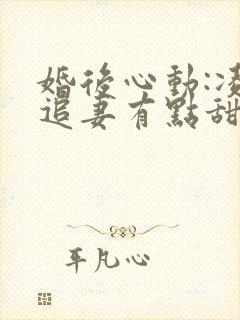 婚後心動:凌
追妻有點甜
平凡心